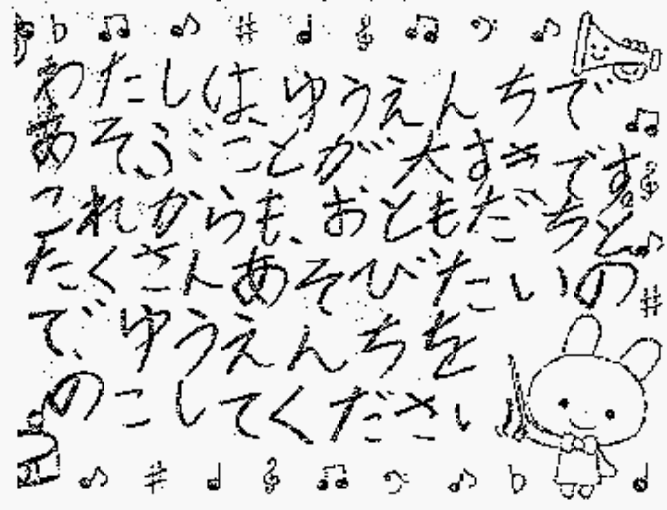 わたしは、ゆうえんちで
あそぶことが大すきです。
これからも、おともだちと
たくさんあそびたいの
で、ゆうえんちを
のこしてください